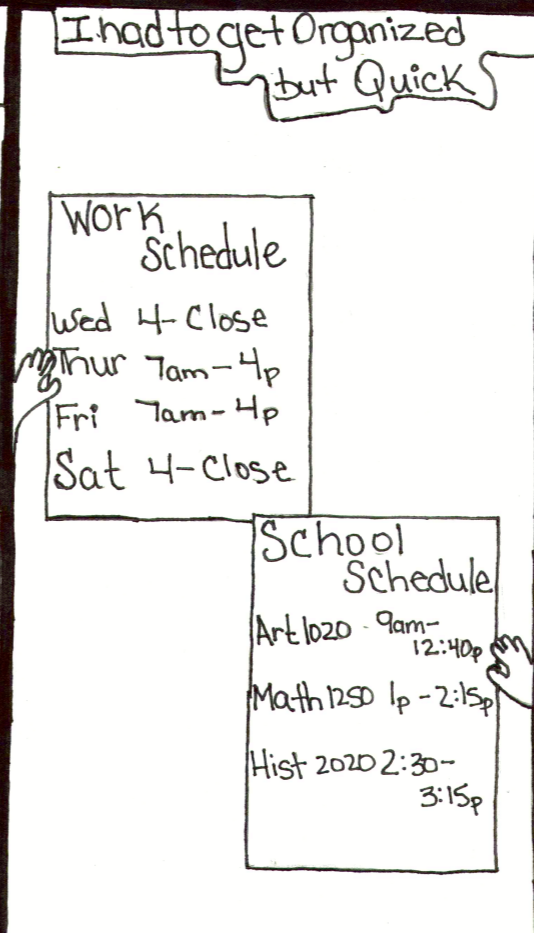 I had to get Organized
but Quick
Work
Schedule
Wed 4-Close
Thur 7am-4p
Fri 7am-4p
Sat 4-Close
School
Schedule
Art 1020 - 9am-
12:40p
Math 1250 1p-2:15p
Hist 2020 2:30-
3:15p